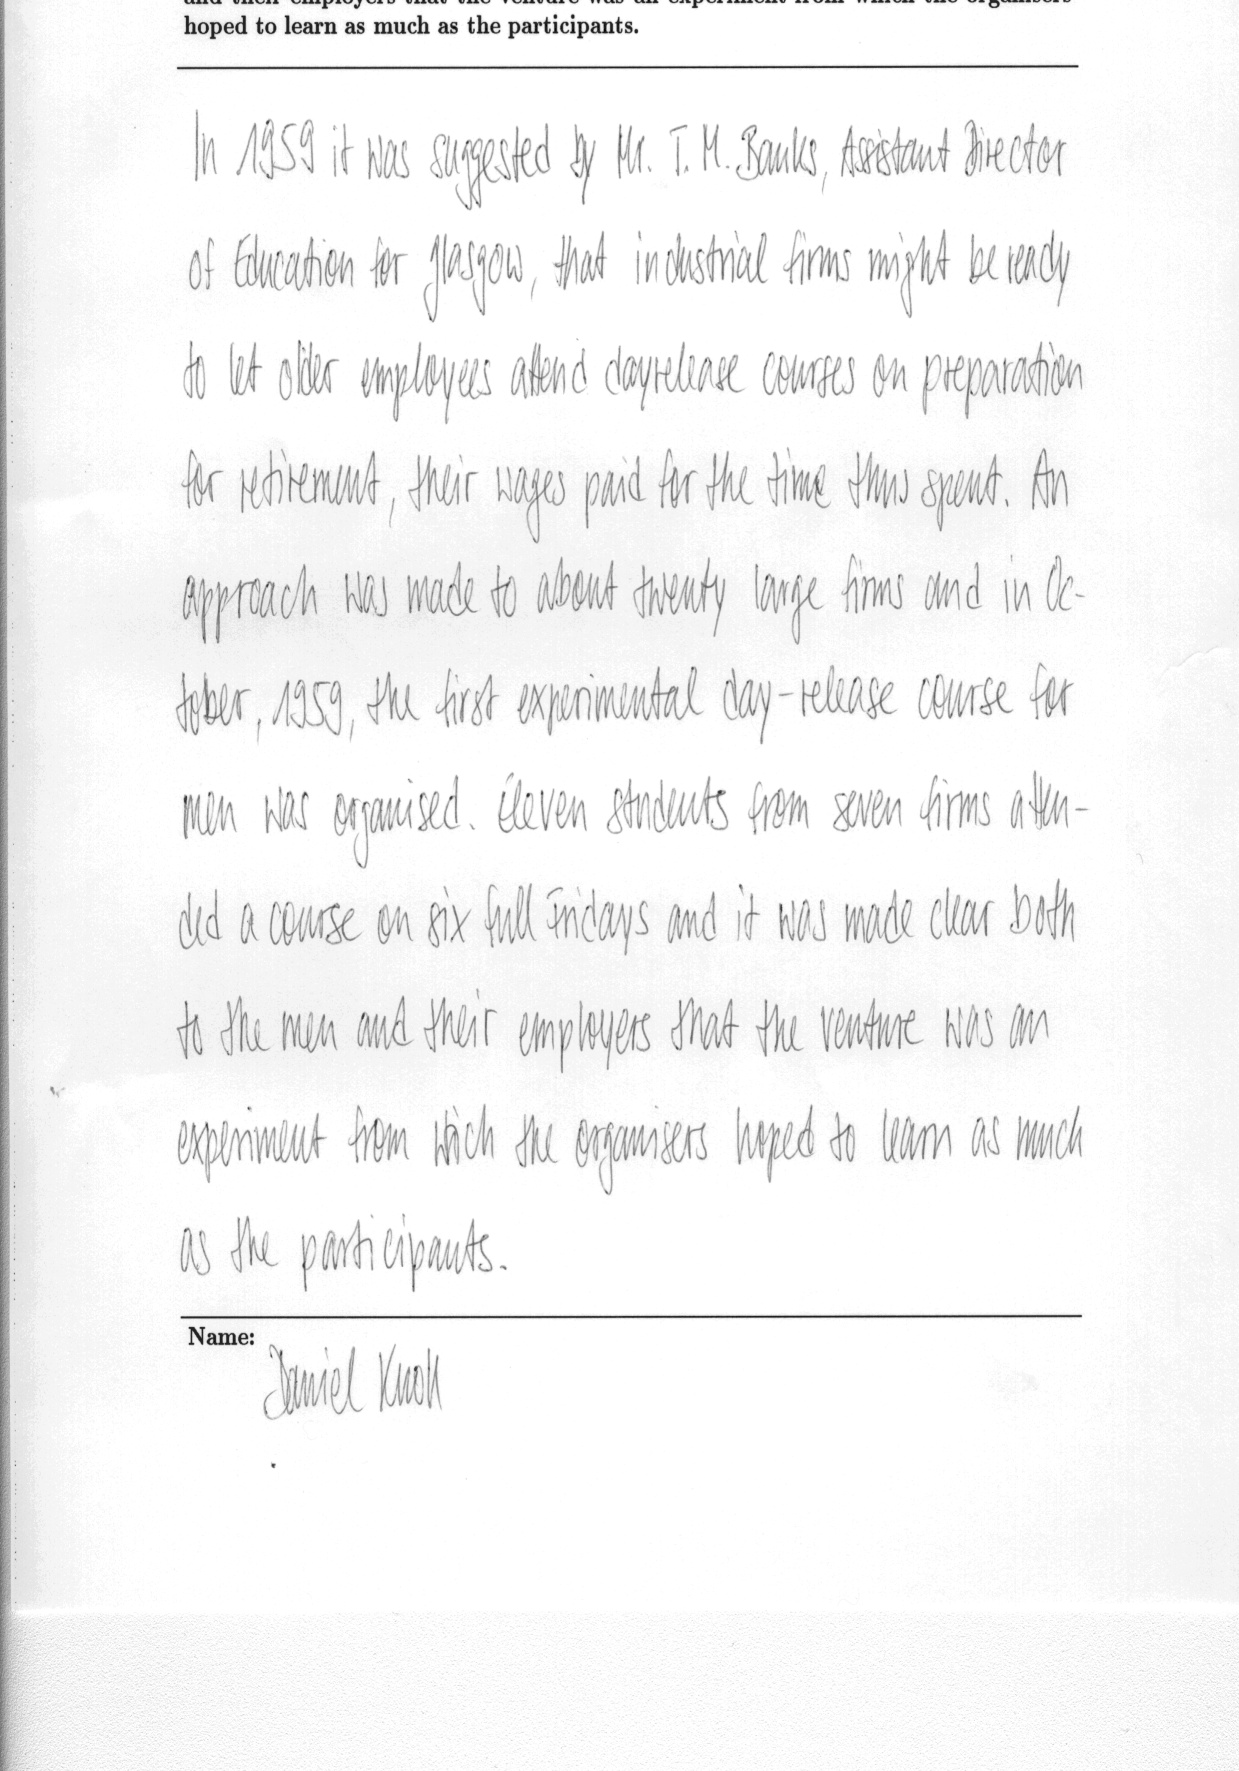 and their employers that the venture was an experiment from which the organisers
hoped to learn as much as the participants.
In 1959 it was suggested by Mr. T. M. Banks, Assistant Director
of Education for glasgow, that industrial firms might be ready
to let older employees attend dayrelease courses on preparation
for retirement, their wages paid for the time thus spent. An
approach was made to about twenty large firms and in Oc-
tober, 1959, the first experimental day-release course for
men was organised. Eleven students from seven firms atten-
ded a course on six full Fridays and it was made clear both
to the men and their employers that the venture was an
experiment from wich the organisers hoped to learn as much
as the participants.
Name:
Daniel Knoll